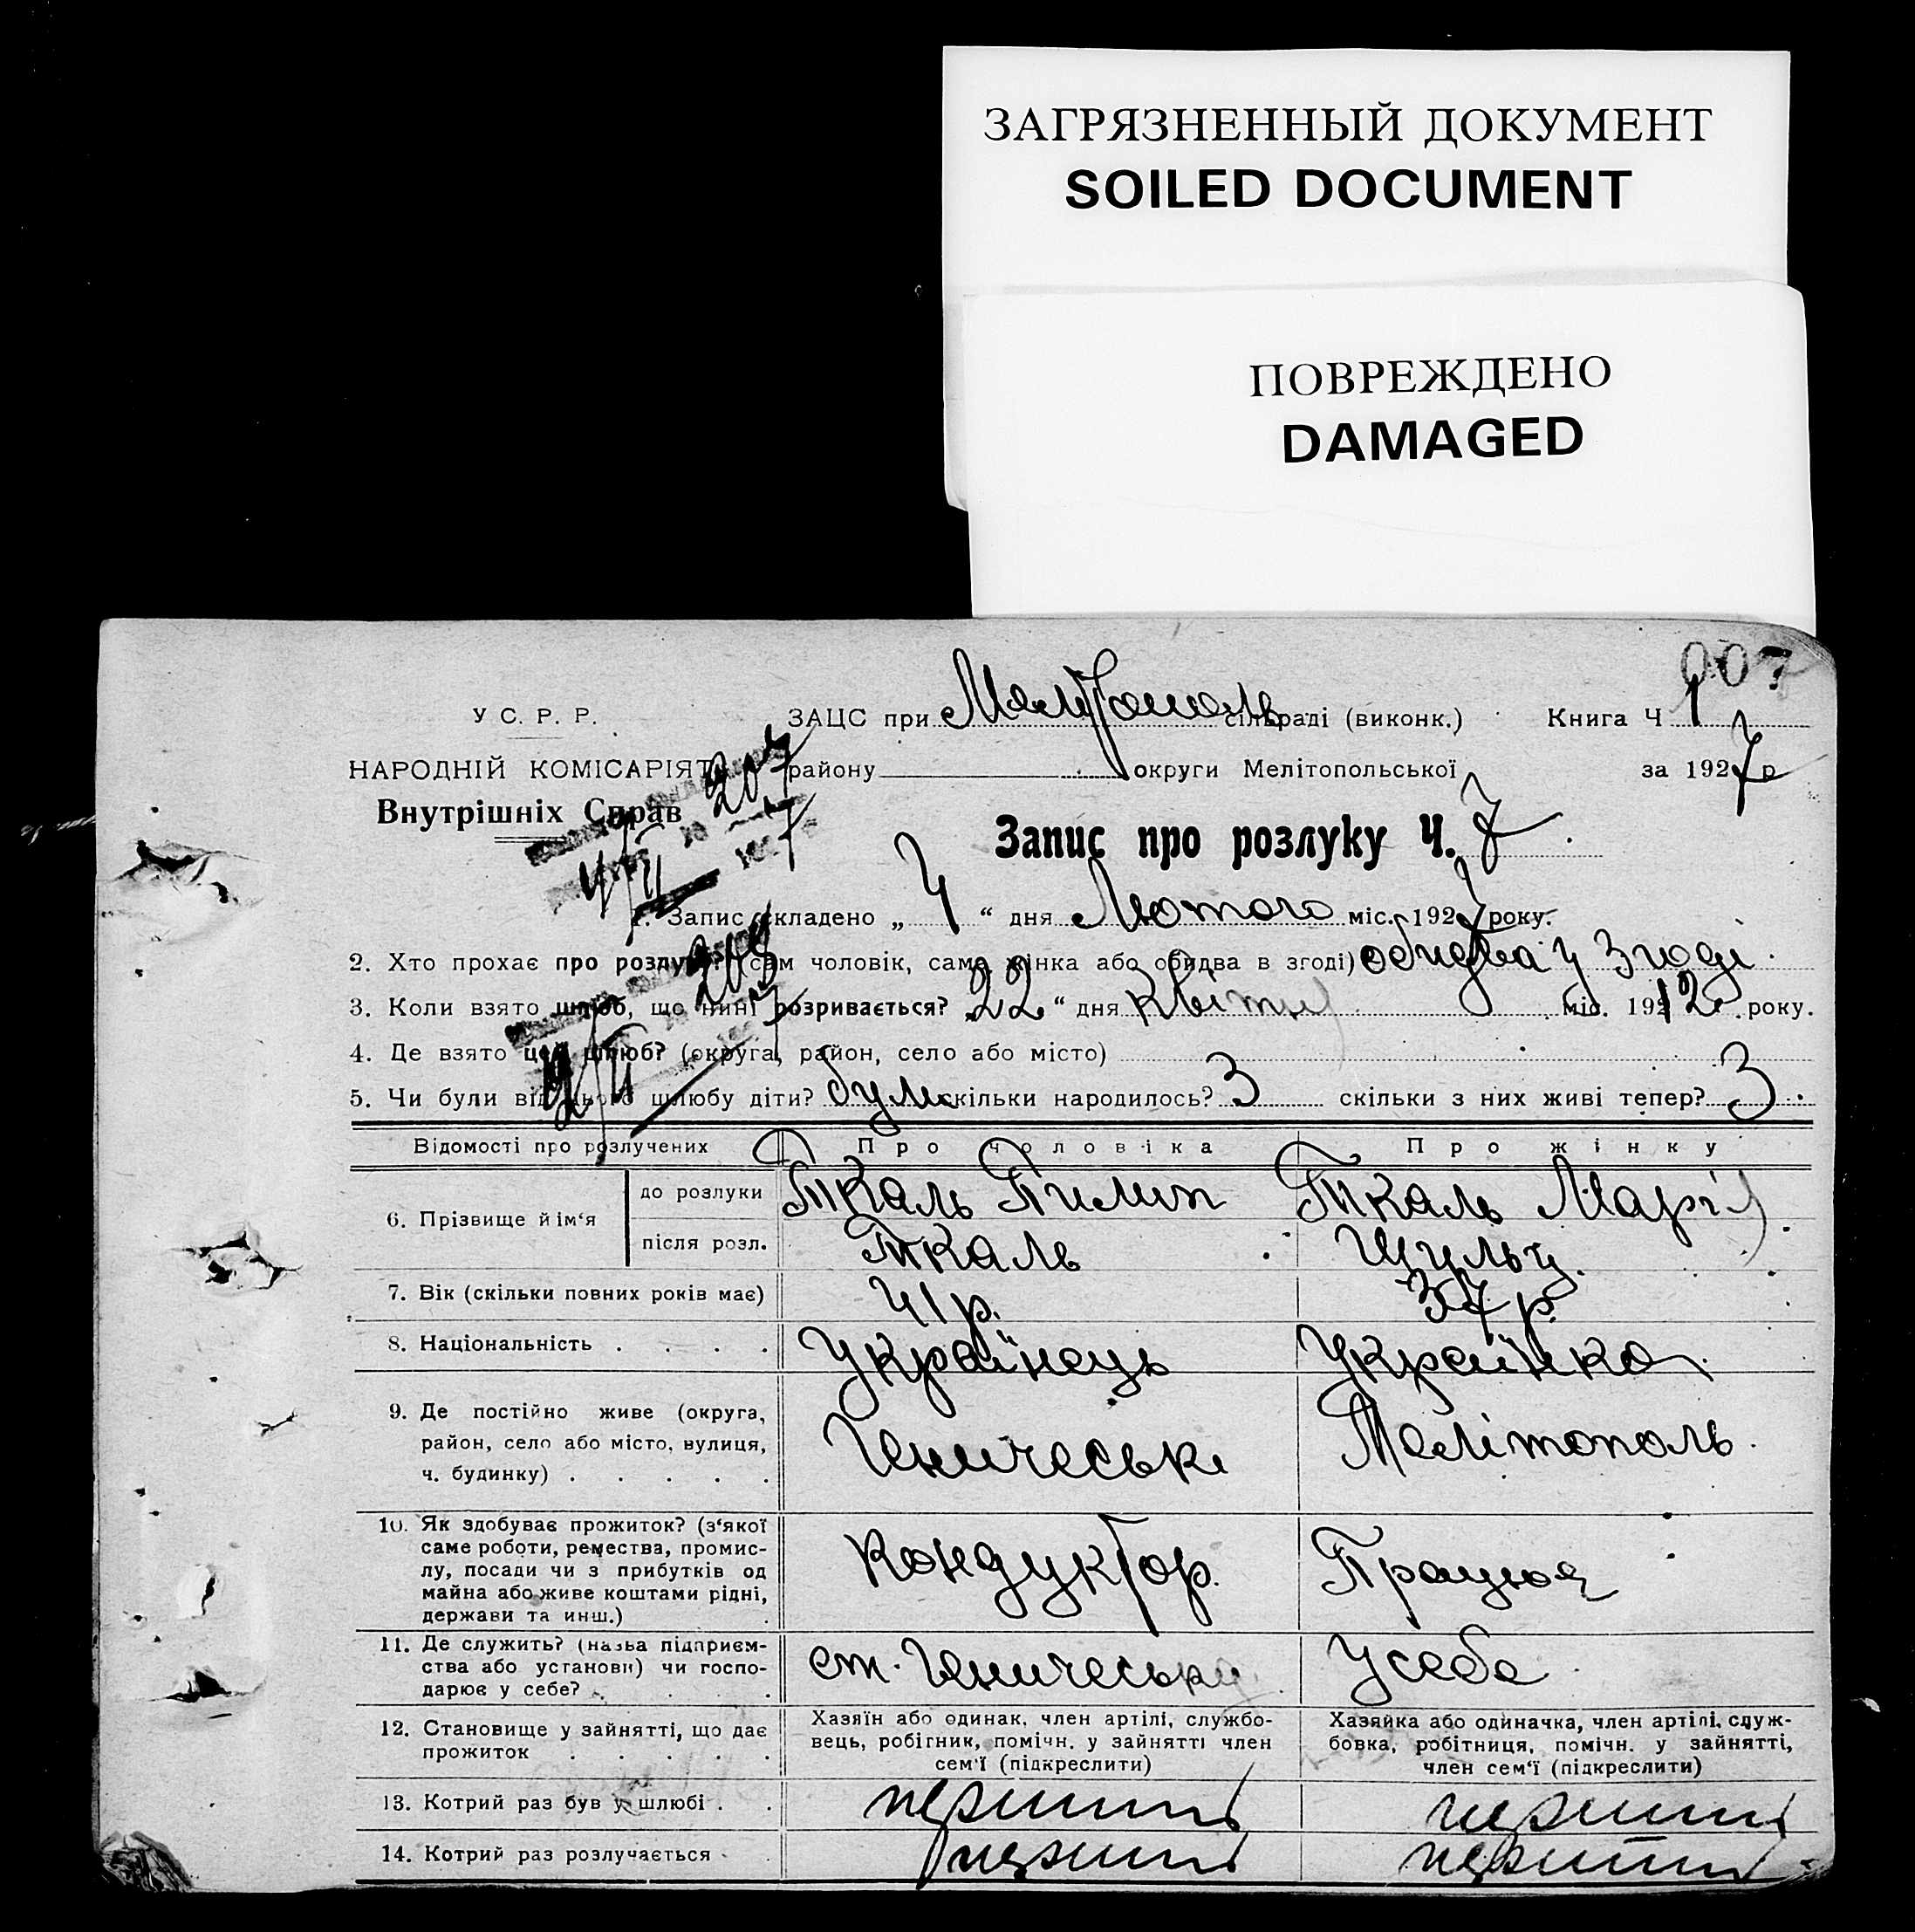 ЗАГРЯЗНЕННЫЙ ДОКУМЕНТ
SOILED DOCUMENT
ПОВРЕЖДЕНО
DAMAGED
007
У С. Р. Р.
ЗАЦС при Мелітополь сільраді (виконк.) Книга Ч 1
НАРОДНІЙ КОМІСАРІЯТ
району округи Мелітопольської за 1927 р
Внутрішніх Справ
207
Запис про розлуку Ч. 7
1. Запис складено „ 4 “ дня Лютого міс. 1927 року.
2. Хто прохає про розлуку? (сам чоловік, сама жінка або обидва в згоді) обидва у згоді
208
3. Коли взято шлюб, що нині розривається? 22 “ дня Квітня міс. 1912 року.
4. Де взято цей шлюб? (округа, район, село або місто)
5. Чи були від цього шлюбу діти? були скільки народилось? 3 скільки з них живі тепер? 3.
Відомості про розлучених
Про чоловіка
Про жінку
6. Прізвище й ім‘я
до розлуки
Ткаль Пилип
Ткаль Марія
після розл.
Ткаль
Шульц.
7. Вік (скільки повних років має)
41 р.
37 р.
8. Національність . . . .
Українець
Українка
9. Де постійно живе (округа,
район, село або місто, вулиця,
ч. будинку) . . . . .
Геническе
Мелітополь.
10. Як здобуває прожиток? (з‘якої
саме роботи, ремества, промис-
лу, посади чи з прибутків од
майна або живе коштами рідні,
держави та инш.) .
Кондуктор.
Працює
11. Де служить? (назва підприєм-
ства або установи) чи госпо-
дарює у себе? . . . .
ст. Геническу
У себе
12. Становище у зайнятті, що дає
прожиток . . . . .
Хазяїн або одинак, член артілі, службо-
вець, робігник, помічн. у зайнятті член
сем‘ї (підкреслити)
Хазяйка або одиначка, член артілі, служ-
бовка, робітниця, помічн. у зайнятті,
член сем‘ї (підкреслити)
13. Котрий раз був у шлюбі . .
перший
перший
14. Котрий раз розлучається .
перший
перший